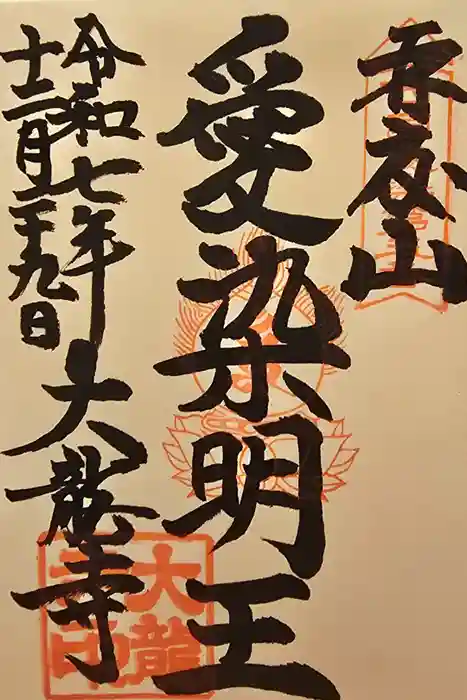 吞山
愛染明王
令和七年
十二月二十九日
大龍寺
大龍
寺印